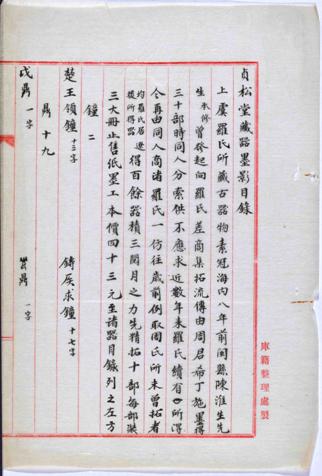 貞松堂藏器墨影目錄
上虞羅氏所藏古器物素冠海內八年前閩縣陳淮生先
生承修曾發起向羅氏差商集拓流傳由周君希丁施墨得
三十部時同人分索供不應求近數年來羅氏續有所得
今再由同人商諸羅氏一仿往歲前例取周氏所未曾拓者
均羅氏居遼後所得器得百餘器積三閱月之力先精拓十部每部裝
三大冊止售紙墨工本價四十三元至諸器目錄列之左方
鐘 二
楚王領鐘十三字 鑄侯求鐘十七字
鼎 十九
戍鼎 一字 鼎 一字
庫籍整理處製